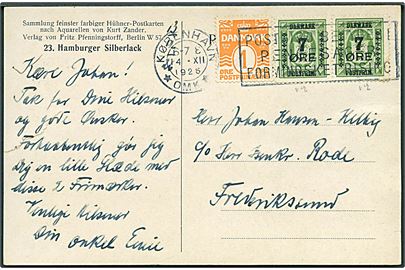 Sammlung feinster farbiger Hühner-Postkarten
nach Aquarellen von Kurt Zander.
Verlag von Fritz Pfenningstorff, Berlin W 57
23. Hamburger Silberlack
KØBENHAVN
4.-XII
1926
OMK.
DANMARK
1
ØRE POSTFRIM
DANMARK
7
ØRE
DANMARK
7
ØRE
Kære Johan!
Tak for Dine Hilsner
og gode Ønsker.
Forhaabentlig gør jeg
dig en lille Glæde med
disse 2 Frimærker.
Venlig Hilsner
Din onkel Emil
Herr Johan Hansen-
c/o Herr Bankr. Rode
Frederikssund